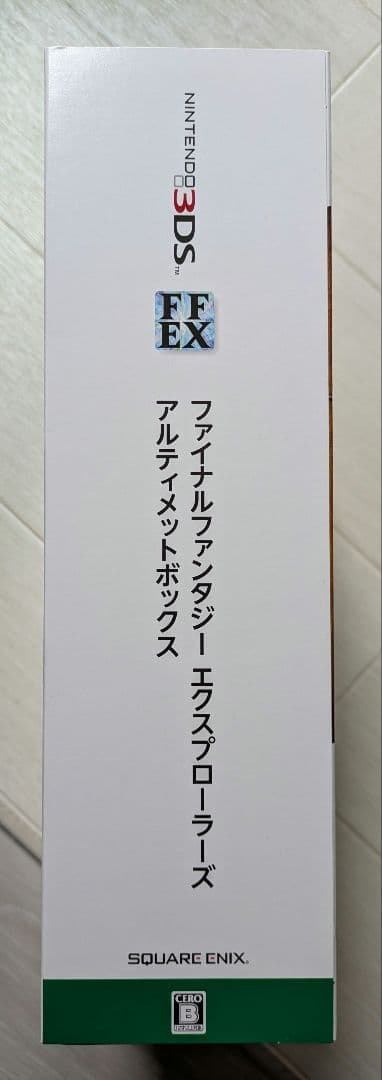 NINTENDO
3DS™
FF
EX
ファイナルファンタジー エクスプローラーズ
アルティメットボックス
SQUARE ENIX®
CERO
B